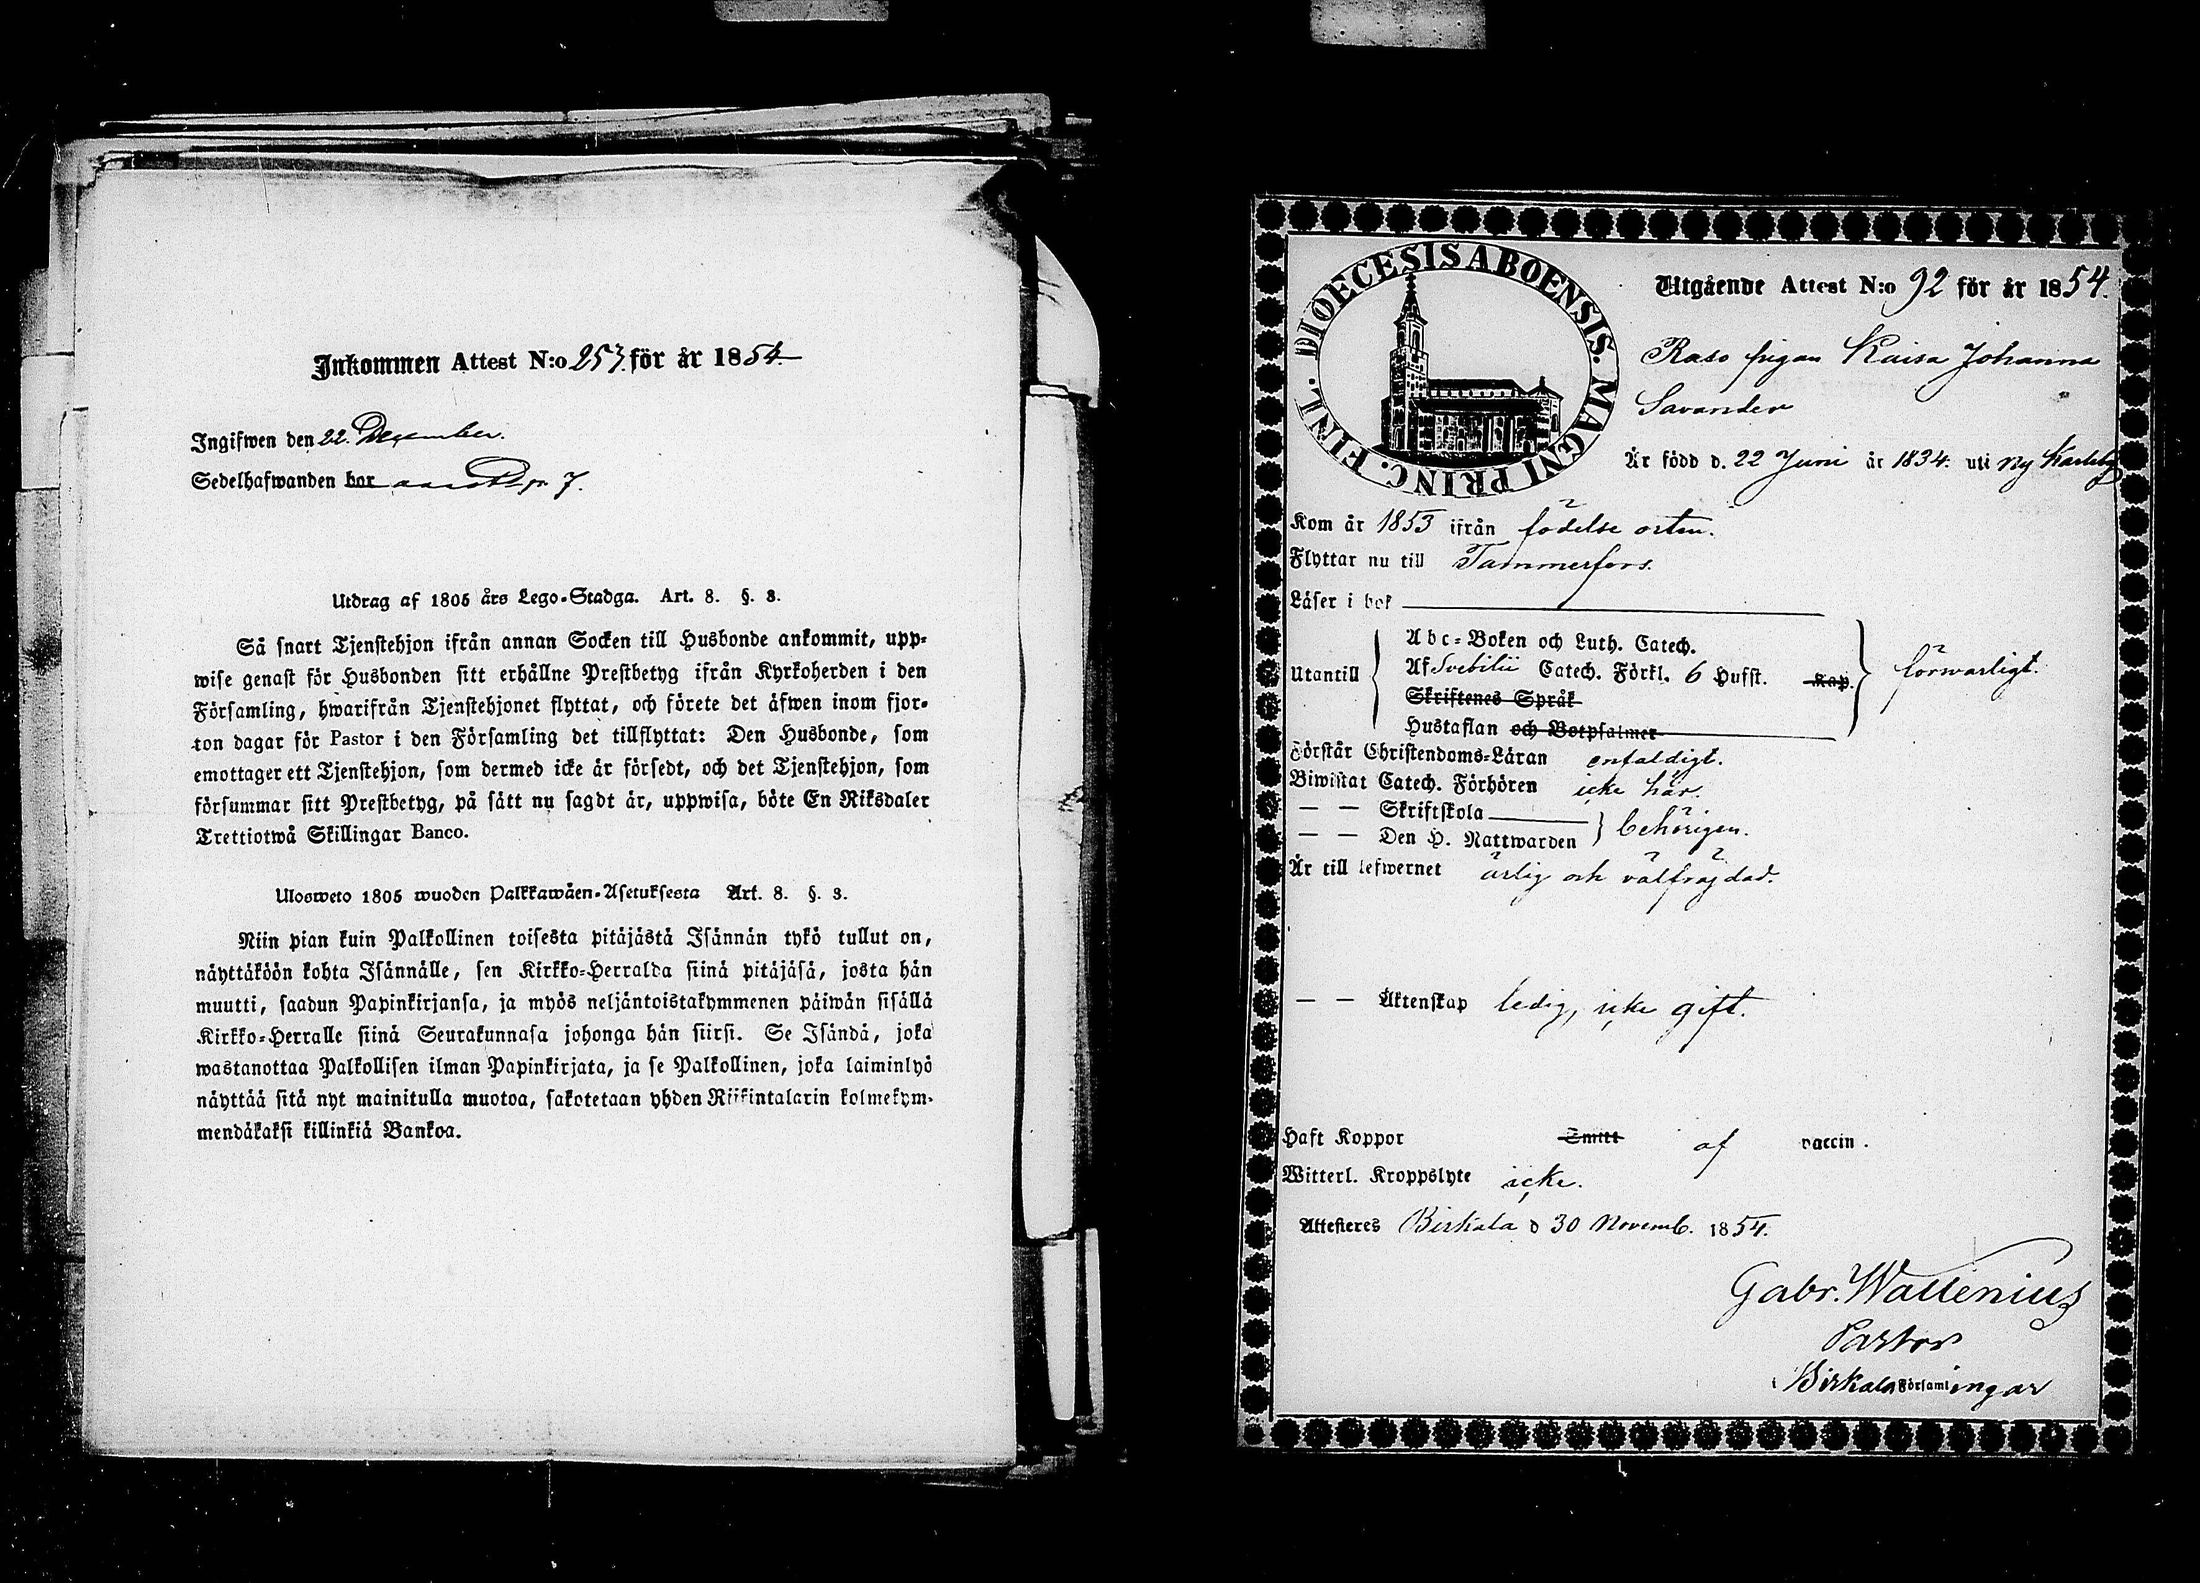 Inkommen Attest N:o 253. för år 1854
Ingifwen den 22. December.
Sedelhafwanden bor
Utdrag af 1805 års Lego-Stadga. Art. 8. §. 3.
Så snart Tjenstehjon ifrån annan Socken till Husbonde ankommit, upp-
wise genast för Husbonden sitt erhållne Prestbetyg ifrån Kyrkoherden i den
Församling, hwarifrån Tjenstehjonet flyttat, och förete det äfwen inom fjor-
ton dagar för Pastor i den Församling det tillflyttat: Den Husbonde, som
emottager ett Tjenstehjon, som dermed icke är försedt, och det Tjenstehjon, som
försummar sitt Prestbetyg, på sätt nu sagdt är, uppwisa, böte En Riksdaler
Trettiotwå Skillingar Banco.
Ulosweto 1805 wuoden Palkkawäen-Asetuksesta Art. 8. §. 3.
Niin pian kuin Palkollinen toisesta pitäjästä Isännän tykö tullut on,
näyttäköön kohta Isännälle, sen Kirkko-Herralda siinä pitäjäsä, josta hän
muutti, saadun Papinkirjansa, ja myös neljäntoistakymmenen päiwän sisällä
Kirkko-Herralle siinä Seurakunnasa johonga hän siirsi. Se Isändä, joka
wastanottaa Palkollisen ilman Papinkirjata, ja se Palkollinen, joka laiminlyö
näyttää sitä nyt mainitulla muotoa, sakotetaan yhden Riikintalarin kolmekym-
mendäkaksi killinkiä Bankoa.
DIOECESIS ABOENSIS. MAGNI PRINC. FINL.
Utgående Attest N:o 92 för år 1854.
pigan Kaisa Johanna
Savander
Är född d. 22 Juni år 1834. uti Ny Karleby
Kom år 1853 ifrån födelse orten.
Flyttar nu till Tammerfors.
Läser i bok
Abc-Boken och Luth. Catech.
Utantill Af Svebilii Catech. Förkl. 6 Hufst. Kap. förswarligt.
Skriftenes Språk
Hustaflan och Botpsalmer
Förstår Christendoms-Läran enfaldigt.
Biwistat Catech. Förhören icke här.
— — Skriftskola
— — Den H. Nattwarden behörigen.
Är till lefwernet ärlig och välfräjdad.
— — Äktenskap ledig, icke gift.
Haft Koppor Smitt af vaccin.
Witterl. Kroppslyte icke.
Attesteres Birkala d 30 Novemb. 1854.
Gabr. Wallenius
Pastor
Birkala Församlingar